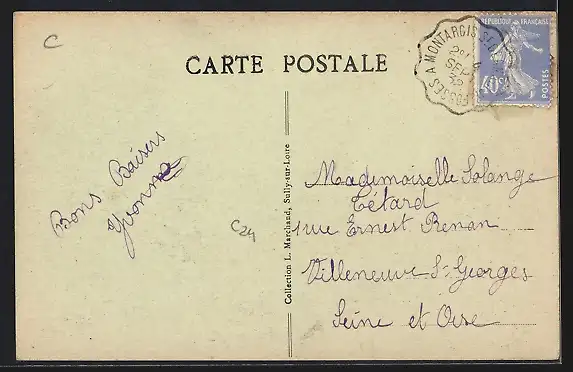 C
CARTE POSTALE
FOSSES A MONTARGIS
SEP
32
REPUBLIQUE FRANÇAISE
40c
POSTES
Bons Baisers
Yvonne
C24
Collection L. Marchand, Sully-sur-Loire
Mademoiselle Solange
Tétard
1 rue Ernest Renan
Villeneuve St-Georges
Seine et Oise